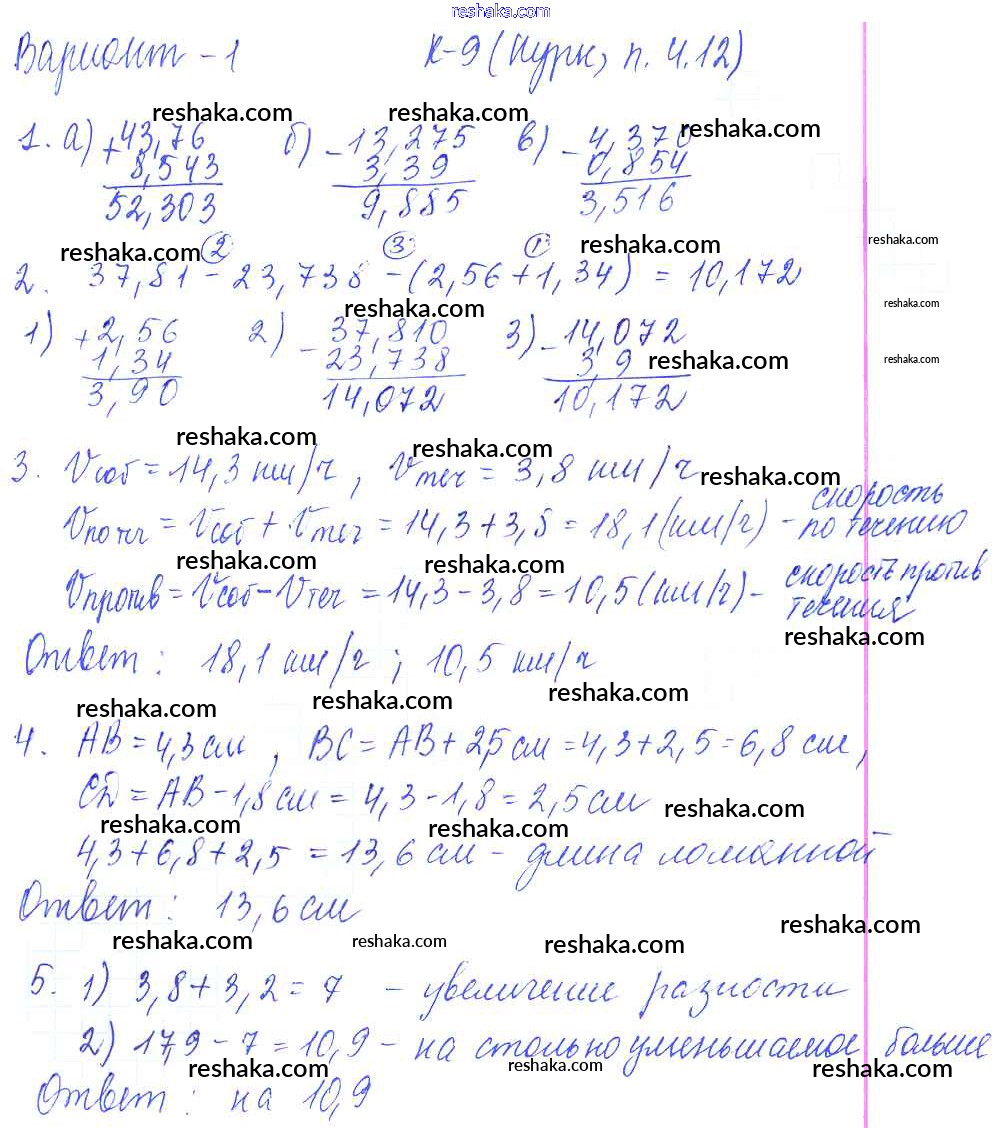 reshaka.com
Вариант - 1 К-9 (Нурк, п. 4.12)
reshaka.com reshaka.com reshaka.com
1. а) + 43,76 б) - 13,275 в) - 4,370
8,543 3,39 0,854
52,303 9,885 3,516
reshaka.com reshaka.com reshaka.com
② ③ ①
2. 37,81 - 23,738 - (2,56 + 1,34) = 10,172
reshaka.com reshaka.com
1) + 2,56 2) - 37,810 3) - 14,072
1,34 23,738 3,9
reshaka.com reshaka.com
3,90 14,072 10,172
reshaka.com reshaka.com
3. Vсоб = 14,3 км/ч, Vтеч = 3,8 км/ч
reshaka.com
Vпо теч = Vсоб + Vтеч = 14,3 + 3,8 = 18,1 (км/ч) - скорость
по течению
reshaka.com reshaka.com
Vпротив = Vсоб - Vтеч = 14,3 - 3,8 = 10,5 (км/ч) - скорость против
течения
reshaka.com
Ответ: 18,1 км/ч; 10,5 км/ч
reshaka.com reshaka.com reshaka.com
4. AB = 4,3 см, BC = AB + 2,5 см = 4,3 + 2,5 = 6,8 см,
CD = AB - 1,8 см = 4,3 - 1,8 = 2,5 см
reshaka.com reshaka.com reshaka.com
4,3 + 6,8 + 2,5 = 13,6 см - длина ломанной
Ответ: 13,6 см
reshaka.com reshaka.com reshaka.com reshaka.com
5. 1) 3,8 + 3,2 = 7 - увеличение разности
2) 17,9 - 7 = 10,9 - на столько уменьшаемое больше
reshaka.com reshaka.com reshaka.com
Ответ: на 10,9